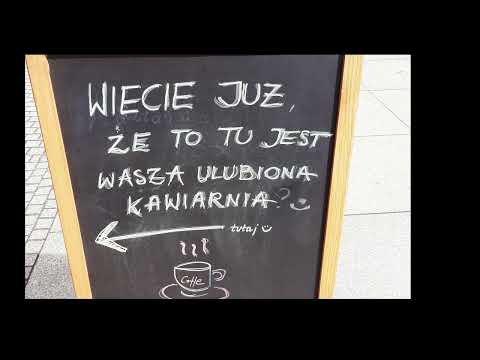 WIECIE JUZ,
ŻE TO TU JEST
WASZA ULUBIONA
KAWIARNIA?
tutaj
Coffe